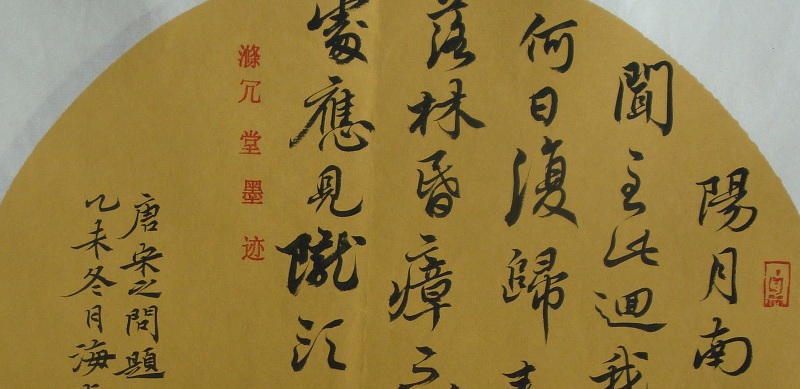 陽月南
聞至此迴我
何日復歸
落林昏瘴不
處應見隴頭
滌冗堂墨迹
唐宋之問題
乙未冬月海